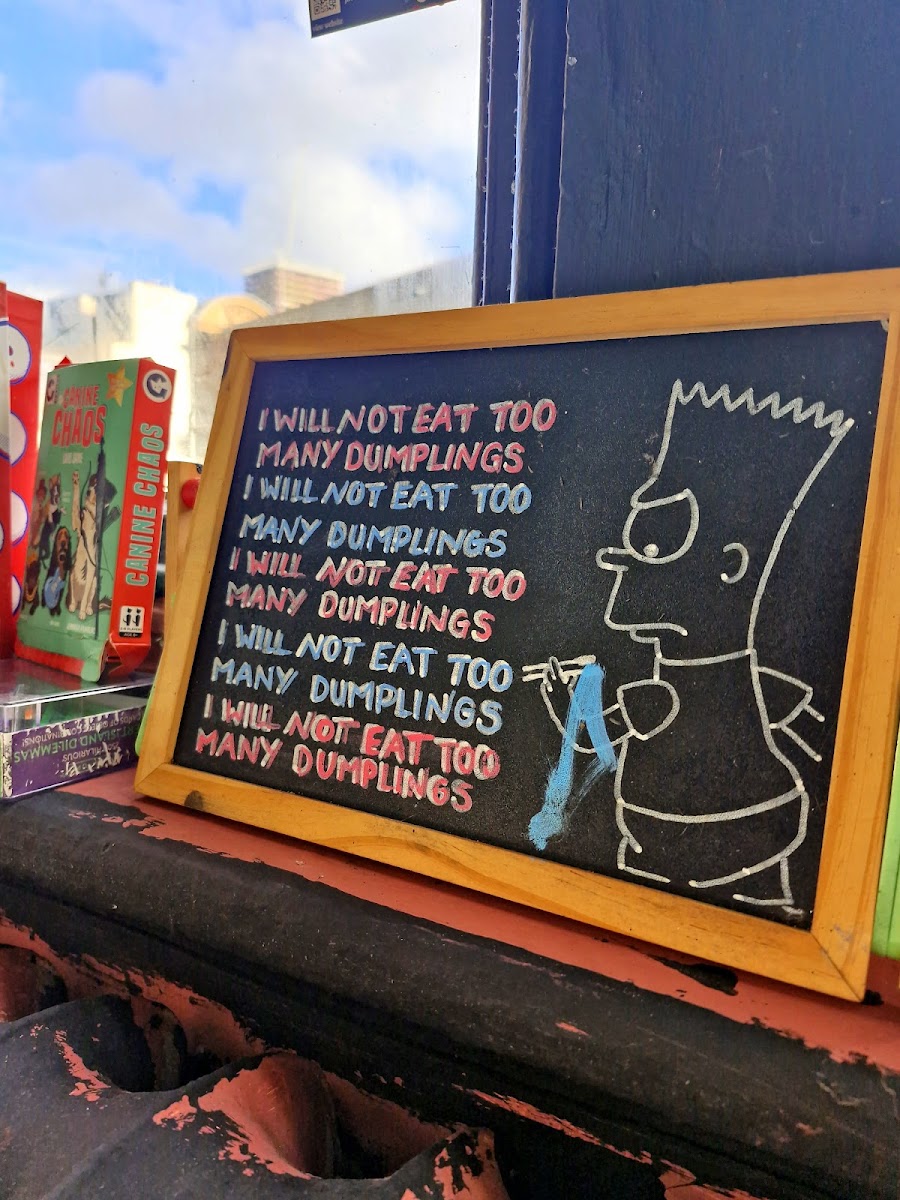 I WILL NOT EAT TOO
MANY DUMPLINGS
I WILL NOT EAT TOO
MANY DUMPLINGS
I WILL NOT EAT TOO
MANY DUMPLINGS
I WILL NOT EAT TOO
MANY DUMPLINGS
I WILL NOT EAT TOO
MANY DUMPLINGS
CANINE
CHAOS
CARD GAME
CANINE CHAOS